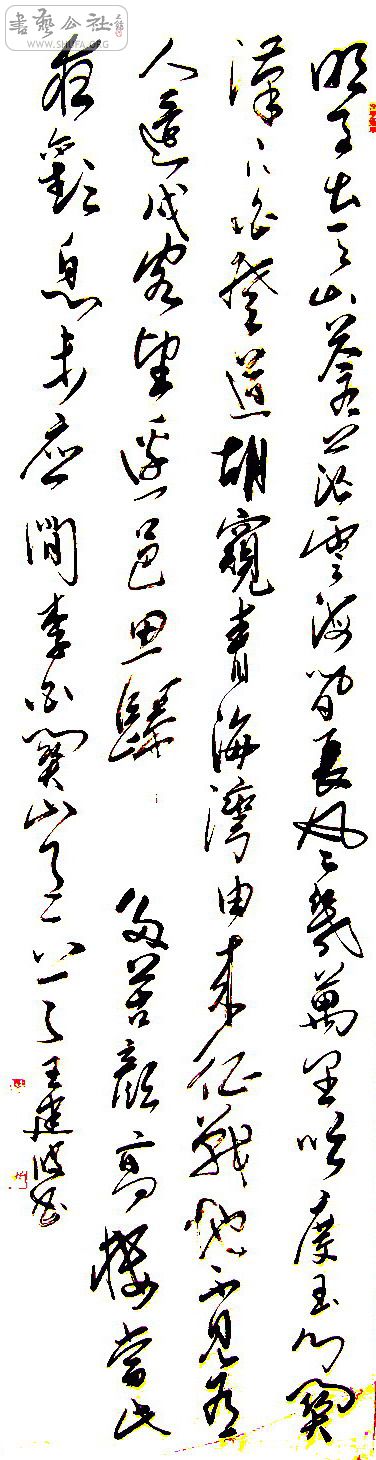 書藝公社
WWW.SHUFA.ORG
明月出天山蒼茫雲海間長風幾萬里吹度玉門關
漢下白登道胡窺青海灣由来征戰地不見有
人還戍客望邊邑思歸多苦顏高樓當此
夜歎息未應閒李白關山月 王建波書